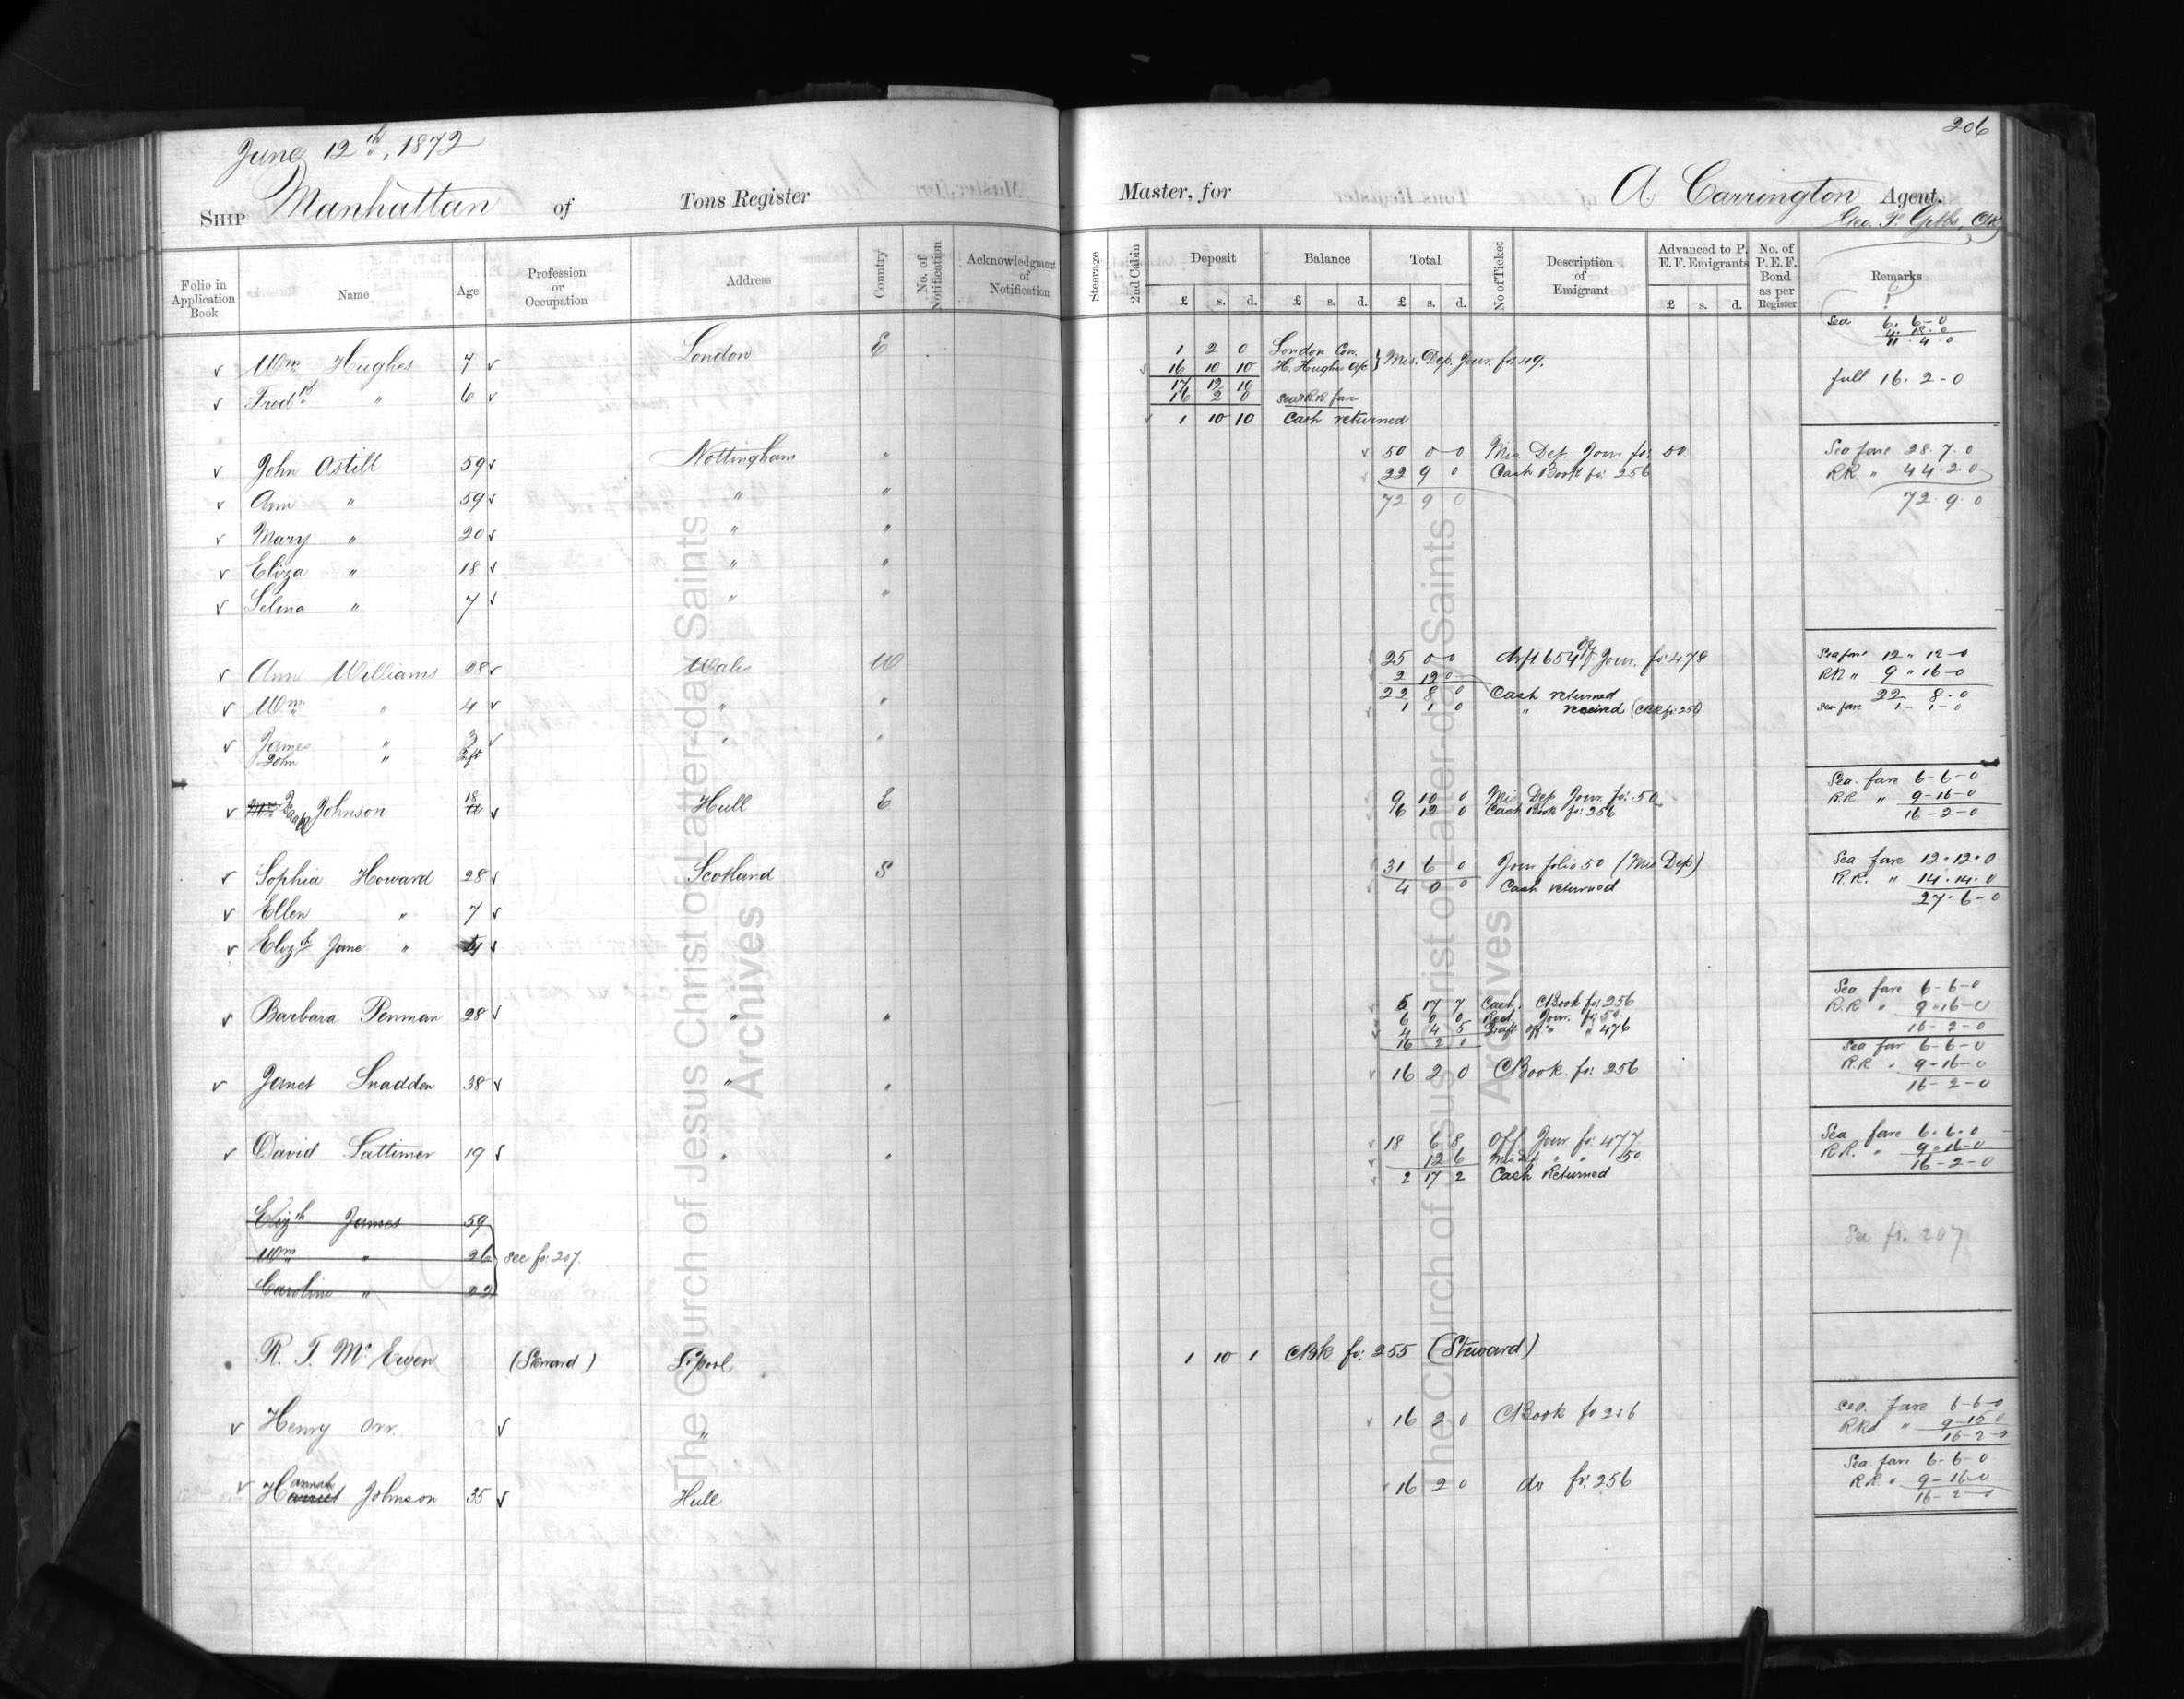 206
June 12th, 1872
SHIP Manhattan of Tons Register Master, for A. Carrington Agent.
Geo. F. Gibbs, Clk
Folio in Application Book Name Age Profession or Occupation Address Country No. of Notification Acknowledgment of Notification Steerage 2nd Cabin Deposit Balance Total No of Ticket Description of Emigrant Advanced to P. E. F. Emigrants No. of P. E. F. Bond as per Register Remarks
£ s. d. £ s. d. £ s. d. £ s. d.
Sea 6. 6-0
4. 18. 0
11. 4. 0
v Wm Hughes 7 v London E 1 2 0 London Con. } Mis. Dep. Jour. fo 49.
16 10 10 H. Hughes a/c
v Fredk " 6 v 17 12 10 full 16. 2-0
16 2 0 Sea & RR fare
1 10 10 Cash returned
v John Astill 59 v Nottingham " 50 0-0 Mis. Dep. Jour. fo: 50 Sea fare 28. 7. 0
22 9 0 Cash Book fo: 256 RR " 44. 2. 0
v Ann " 59 v " " 72 9 0 72. 9. 0
v Mary " 20 v " "
v Eliza " 18 v " "
v Selina " 7 v " "
v Ann Williams 28 v Wales W 25 0-0 drft 654 Off Jour. fo: 478 Sea fare 12 " 12-0
2 12 0 RR " 9 " 16-0
v Wm " 4 v " " 22 8 0 Cash returned 22 8. 0
1 1 0 " received (CBk fo: 256) Sea fare 1- 1-0
v James " 3 v " "
John "
v Johnson 18 v Hull E 9 10 0 Mis. Dep. Jour. fo: 50 Sea. fare 6-6-0
6 12 0 Cash Book fo: 256 R.R. " 9-16-0
16-2-0
v Sophia Howard 28 v Scotland S 31 6 0 Jour folio 50 (Mis Dep) Sea fare 12. 12. 0
4 0 0 Cash returned R.R. " 14. 14. 0
v Ellen " 7 v 27. 6-0
v Elizth Jane " 4 v
v Barbara Penman 28 v " " 5 17 7 Cash. CBook fo: 256 Sea fare 6-6-0
6 0 0 Jour. fo: 50. R.R " 9-16-0
4 4 5 Draft off " " 476 16-2-0
16 2 0
v Janet Snadden 38 v " " 16 2 0 CBook. fo: 256 Sea far 6-6-0
R.R " 9-16-0
16-2-0
v David Lattimer 19 v " " 18 6 8 Off Jour fo: 477 Sea fare 6. 6. 0
12 6 Mis Dep " " 50 R.R. " 9. 16-0
2 17 2 Cash Returned 16-2-0
Elizth James 59
Wm " 26 see fo: 207. See fo. 207
Caroline " 22
R. T. McEwen (Steward) L'pool 1 10 1 CBk fo: 255 (Steward)
v Henry Orr. v " 16 2 0 CBook fo 256 Sea. fare 6-6-0
RRd " 9-16 0
16-2-0
v Hannah Johnson 35 v Hull 16 2 0 do fo: 256 Sea fare 6-6-0
R.R. " 9-16-0
16-2-0
The Church of Jesus Christ of Latter-day Saints
Archives
The Church of Jesus Christ of Latter-day Saints
Archives